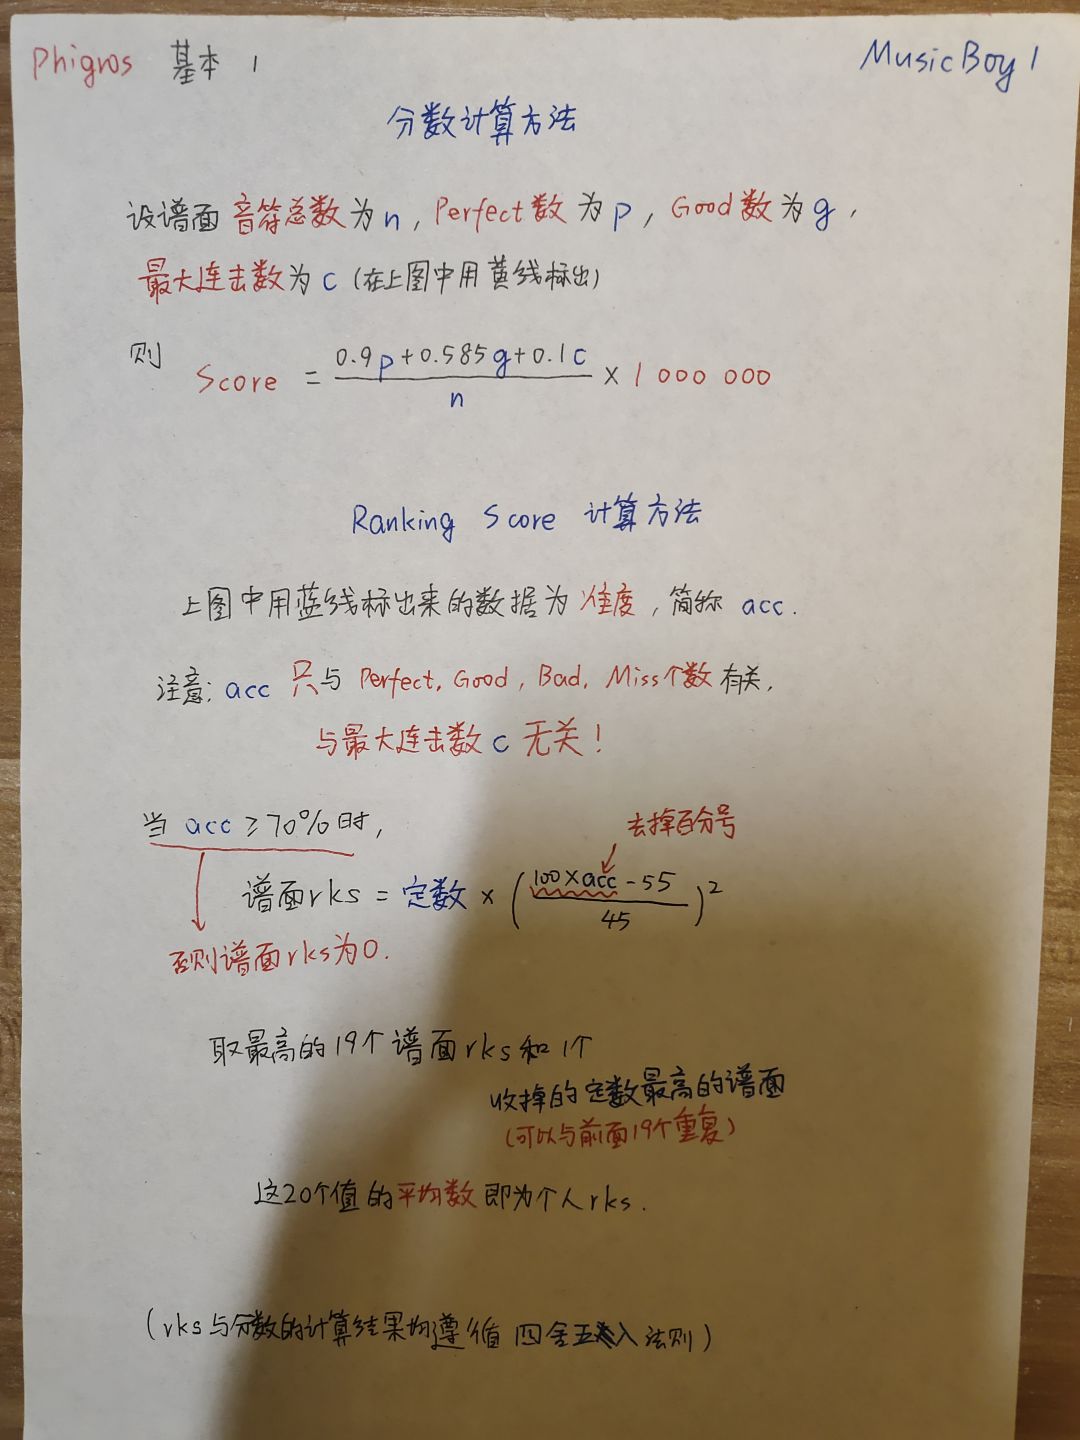 Phigros 基本 1
MusicBoy 1
分数计算方法
设谱面音符总数为n，Perfect数为p，Good数为g，
最大连击数为c（在上图中用黄线标出）
则 Score = (0.9p+0.585g+0.1c)/n × 1 000 000
Ranking Score 计算方法
上图中用蓝线标出来的数据为准度，简称 acc.
注意：acc 只与 Perfect, Good, Bad, Miss个数有关，
与最大连击数c无关！
当 acc ≥ 70% 时，
去掉百分号
谱面rks = 定数 × ((100×acc - 55)/45)²
否则谱面rks为0.
取最高的19个谱面rks和1个
收掉的定数最高的谱面
（可以与前面19个重复）
这20个值的平均数即为个人rks.
（rks与分数的计算结果均遵循四舍五入法则）